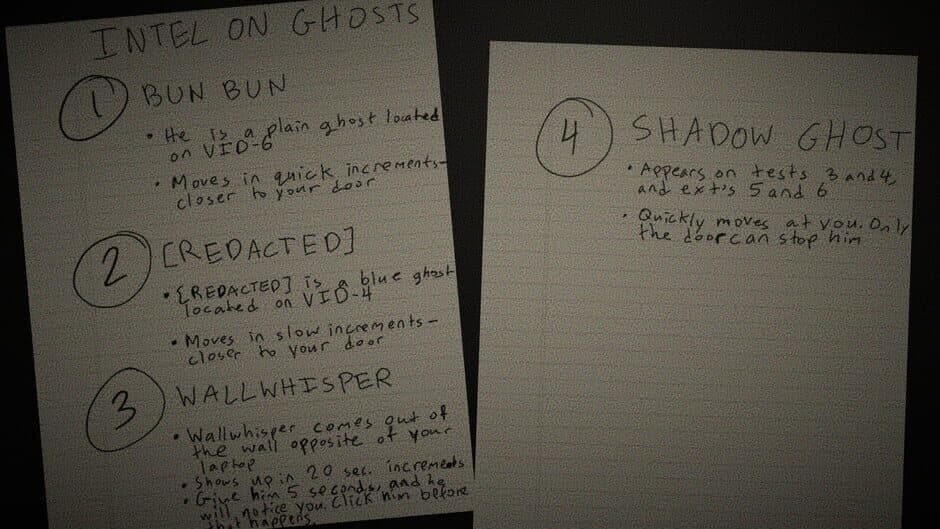 INTEL ON GHOSTS
1 BUN BUN
• He is a plain ghost located
on VID-6
• Moves in quick increments-
closer to your door
2 [REDACTED]
• [REDACTED] is a blue ghost
located on VID-4
• Moves in slow increments-
closer to your door
3 WALLWHISPER
• Wallwhisper comes out of
the wall opposite of your
laptop
• Shows up in 20 sec. increments
• Give him 5 seconds, and he
will notice you. Click him before
that happens.
4 SHADOW GHOST
• Appears on tests 3 and 4,
and ext's 5 and 6
• Quickly moves at you. Only
the door can stop him